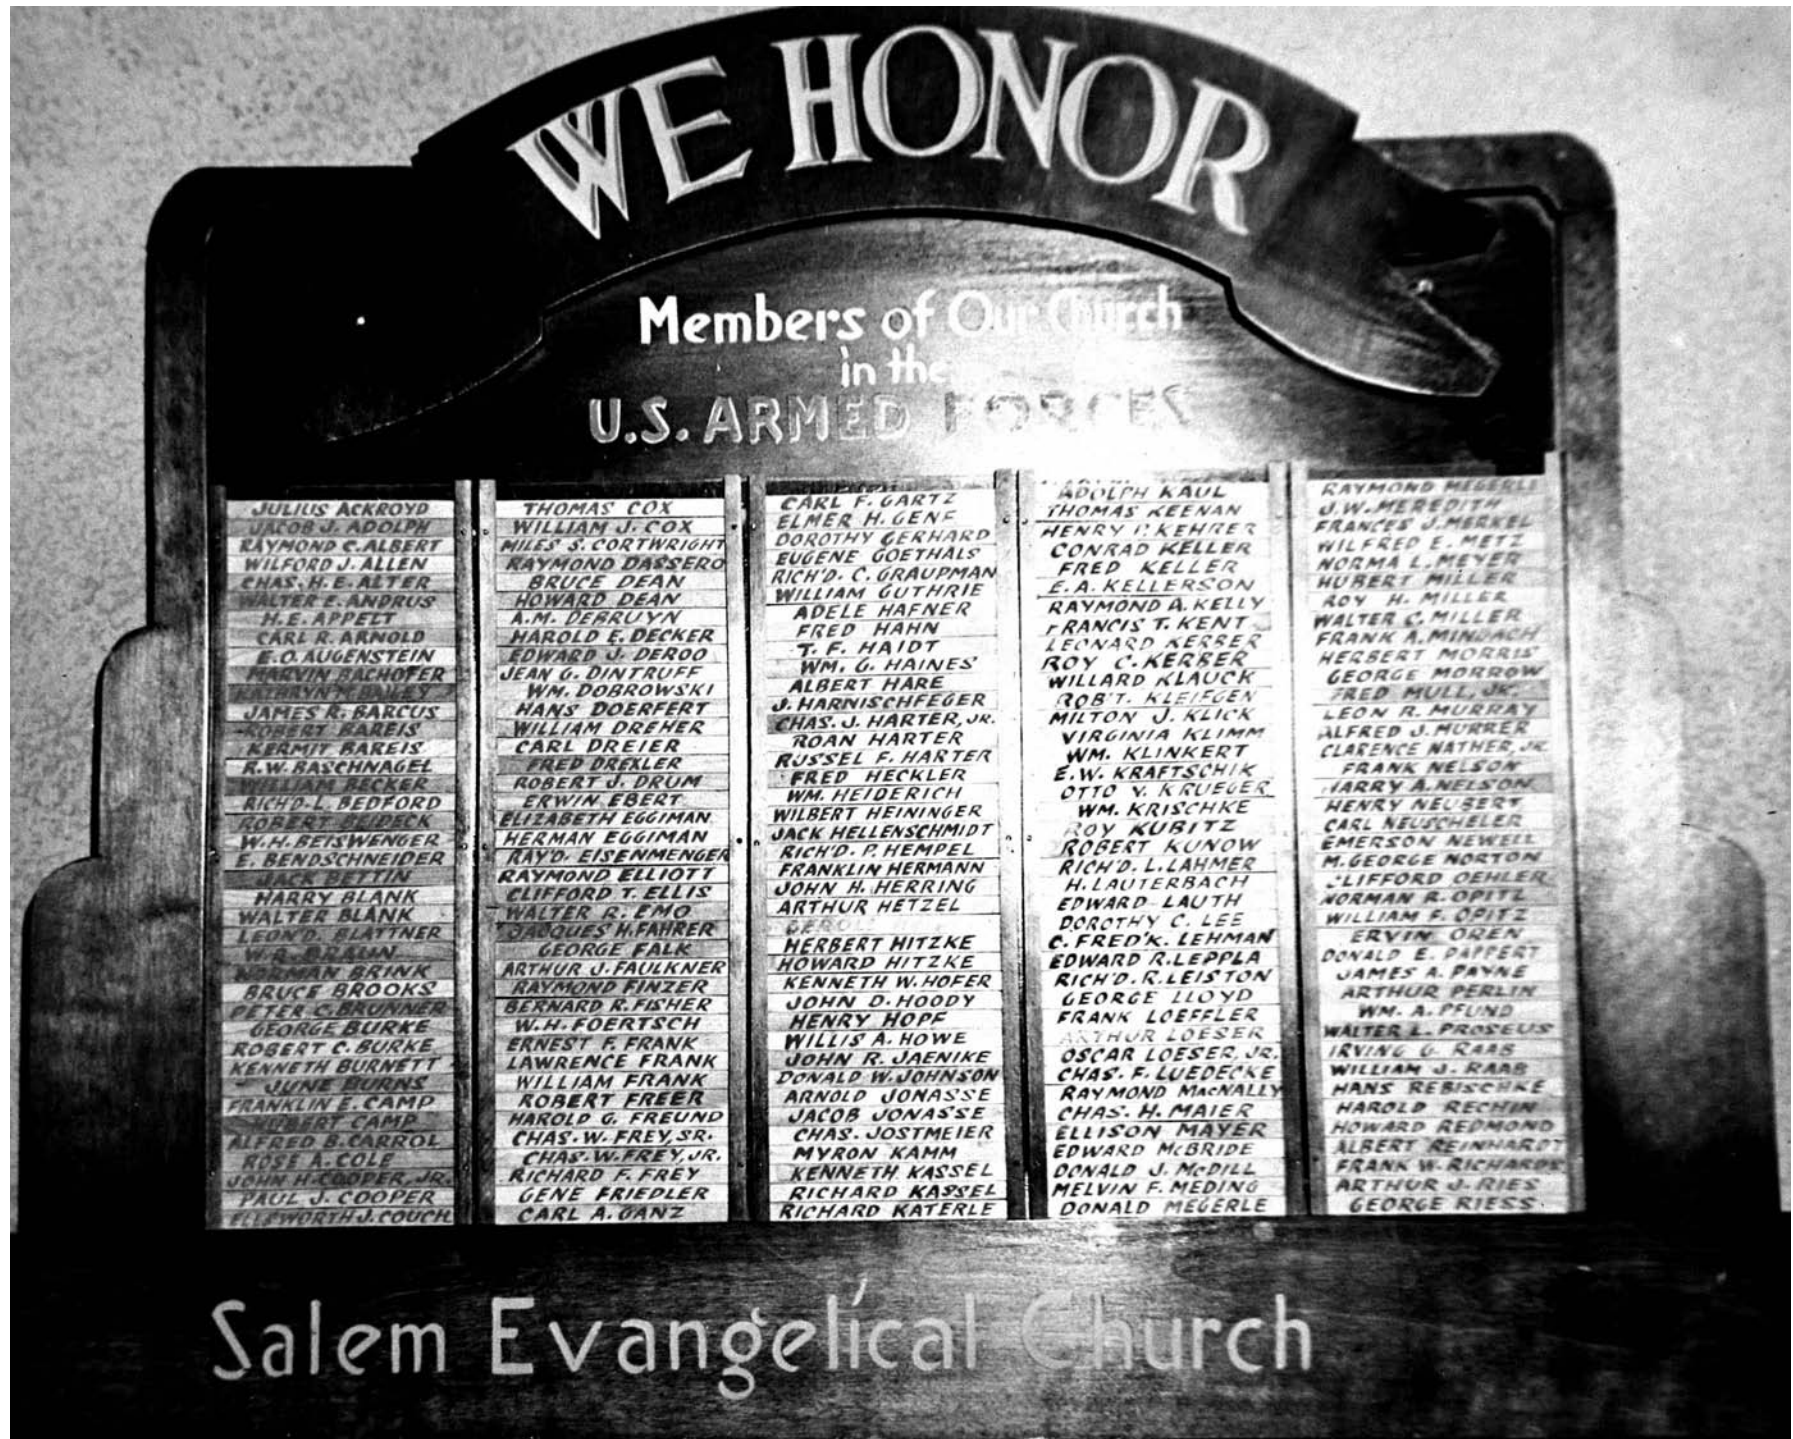 WE HONOR
Members of Our Church
in the
U.S. ARMED FORCES
JULIUS ACKROYD
JACOB J. ADOLPH
RAYMOND C. ALBERT
WILFORD J. ALLEN
CHAS. H. E. ALTER
WALTER E. ANDRUS
H. E. APPELT
CARL R. ARNOLD
E. O. AUGENSTEIN
MARVIN BACHOFER
KATHRYN M. BAILEY
JAMES R. BARCUS
ROBERT BAREIS
KERMIT BAREIS
R. W. BASCHNAGEL
WILLIAM BECKER
RICH'D. L. BEDFORD
ROBERT BEIDECK
W. H. BEISWENGER
E. BENDSCHNEIDER
JACK BETTIN
HARRY BLANK
WALTER BLANK
LEON'D. BLATTNER
W. R. BRAUN
NORMAN BRINK
BRUCE BROOKS
PETER C. BRUNNER
GEORGE BURKE
ROBERT C. BURKE
KENNETH BURNETT
JUNE BURNS
FRANKLIN E. CAMP
HUBERT CAMP
ALFRED B. CARROL
ROSE A. COLE
JOHN H. COOPER, JR.
PAUL J. COOPER
ELLSWORTH J. COUCH
THOMAS COX
WILLIAM J. COX
MILES S. CORTWRIGHT
RAYMOND DASSERO
BRUCE DEAN
HOWARD DEAN
A.M. DEBRUYN
HAROLD E. DECKER
EDWARD J. DEROO
JEAN G. DINTRUFF
WM. DOBROWSKI
HANS DOERFERT
WILLIAM DREHER
CARL DREIER
FRED DREXLER
ROBERT J. DRUM
ERWIN EBERT
ELIZABETH EGGIMAN
HERMAN EGGIMAN
RAY'D. EISENMENGER
RAYMOND ELLIOTT
CLIFFORD T. ELLIS
WALTER R. EMO
JACQUES H. FAHRER
GEORGE FALK
ARTHUR J. FAULKNER
RAYMOND FINZER
BERNARD R. FISHER
W. H. FOERTSCH
ERNEST F. FRANK
LAWRENCE FRANK
WILLIAM FRANK
ROBERT FREER
HAROLD G. FREUND
CHAS. W. FREY, SR.
CHAS. W. FREY, JR.
RICHARD F. FREY
GENE FRIEDLER
CARL A. GANZ
CARL F. GARTZ
ELMER H. GENE
DOROTHY GERHARD
EUGENE GOETHALS
RICH'D. C. GRAUPMAN
WILLIAM GUTHRIE
ADELE HAFNER
FRED HAHN
T. F. HAIDT
WM. G. HAINES
ALBERT HARE
J. HARNISCHFEGER
CHAS. J. HARTER, JR.
ROAN HARTER
RUSSEL F. HARTER
FRED HECKLER
WM. HEIDERICH
WILBERT HEININGER
JACK HELLENSCHMIDT
RICH'D. P. HEMPEL
FRANKLIN HERMANN
JOHN H. HERRING
ARTHUR HETZEL
HERBERT HITZKE
HOWARD HITZKE
KENNETH W. HOFER
JOHN D. HOODY
HENRY HOPF
WILLIS A. HOWE
JOHN R. JAENIKE
DONALD W. JOHNSON
ARNOLD JONASSE
JACOB JONASSE
CHAS. JOSTMEIER
MYRON KAMM
KENNETH KASSEL
RICHARD KASSEL
RICHARD KATERLE
ADOLPH KAUL
THOMAS KEENAN
HENRY P. KEHRER
CONRAD KELLER
FRED KELLER
E. A. KELLERSON
RAYMOND A. KELLY
FRANCIS T. KENT
LEONARD KERBER
ROY C. KERBER
WILLARD KLAUCK
ROB'T. KLEIFGEN
MILTON J. KLICK
VIRGINIA KLIMM
WM. KLINKERT
E.W. KRAFTSCHIK
OTTO V. KRUEGER
WM. KRISCHKE
ROY KUBITZ
ROBERT KUNOW
RICH'D. L. LAHMER
H. LAUTERBACH
EDWARD LAUTH
DOROTHY C. LEE
C. FRED'K. LEHMAN
EDWARD R. LEPPLA
RICH'D. R. LEISTON
GEORGE LLOYD
FRANK LOEFFLER
ARTHUR LOESER
OSCAR LOESER, JR.
CHAS. F. LUEDECKE
RAYMOND MACNALLY
CHAS. H. MAIER
ELLISON MAYER
EDWARD McBRIDE
DONALD J. McDILL
MELVIN F. MEDING
DONALD MEGERLE
RAYMOND MEGERLE
J. W. MEREDITH
FRANCES J. MERKEL
WILFRED E. METZ
NORMA L. MEYER
HUBERT MILLER
ROY H. MILLER
WALTER C. MILLER
FRANK A. MINDACH
HERBERT MORRIS
GEORGE MORROW
FRED MULL, JR.
LEON R. MURRAY
ALFRED J. MURRER
CLARENCE NATHER, JR.
FRANK NELSON
HARRY A. NELSON
HENRY NEUBERT
CARL NEUSCHELER
EMERSON NEWELL
M. GEORGE NORTON
CLIFFORD OEHLER
NORMAN R. OPITZ
WILLIAM F. OPITZ
ERVIN OREN
DONALD E. PAPPERT
JAMES A. PAYNE
ARTHUR PERLIN
WM. A. PFUND
WALTER L. PROSEUS
IRVING G. RAAB
WILLIAM J. RAAB
HANS REBISCHKE
HAROLD RECHIN
HOWARD REDMOND
ALBERT REINHARDT
FRANK W. RICHARDS
ARTHUR J. RIES
GEORGE RIESS
Salem Evangelical Church